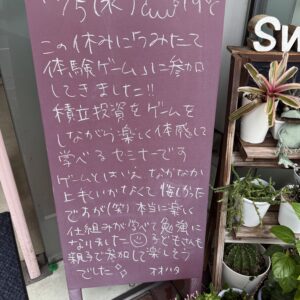 5(水) 19℃
この休みに「つみたて
体験ゲーム」に参加
してきました!!
積立投資をゲームを
しながら楽しく体感して
学べるセミナーです
ゲームとはいえなかなか
上手くいかなくて悔しかった
ですが(笑)本当に楽しく
仕組みが学べて勉強に
なりました 子どもさんも
親子で参加して楽しそう
でした オオハタ
SW